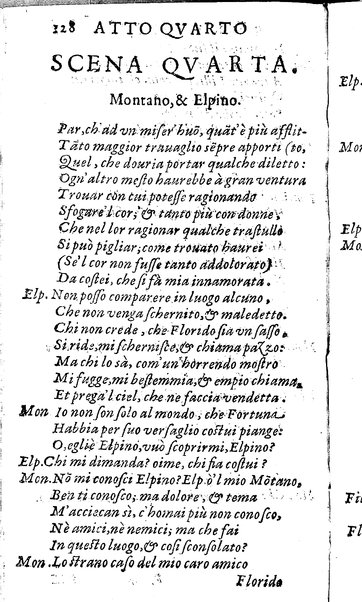 128 ATTO QVARTO
SCENA QVARTA.
Montano, & Elpino.
Par, ch'ad vn miser'huõ, quãt'è più afflit-
Tãto maggior trauaglio sẽpre apporti (to,
Quel, che douria portar qualche diletto:
Ogn'altro mesto haurebbe à gran ventura
Trouar cõn cui potesse ragionando
Sfogare'l cor; & tanto più con donne;
Che nel lor ragionar qualche trastullo
Si può pigliar; come trouato haurei
(Se'l cor non fusse tanto addolorato)
Da costei, che si fà mia innamorata.
Elp. Non posso comparere in luogo alcuno,
Che non venga schernito, & maledetto.
Chi non crede, che Florido sia vn sasso,
Si ride, mi schernisce, & chiama pazzo:
Ma chi lo sà, com'un'horrendo mostro
Mi fugge, mi bestemmia, & empio chiama,
Et prega'l ciel, che ne faccia vendetta.
Mon Io non son solo al mondo, che Fortuna
Habbia per suo versaglio costui piange:
O, egli è Elpino, vuò scoprirmi, Elpino?
Elp. Chi mi dimanda? oime, chi fia costui?
Mon. Nõ mi conosci Elpino? Elp. ò'l mio Mõtano,
Ben ti conosco; ma dolore, & tema
M'acciecan sì, c'homai più non conosco,
Nè amici, nè nemici; ma che fai
In questo luogo, & cosi sconsolato?
Mon. Lo strano caso del mio caro amico
Florido
Elp.
Mon
Elp.
Mo.
Fi
Fl